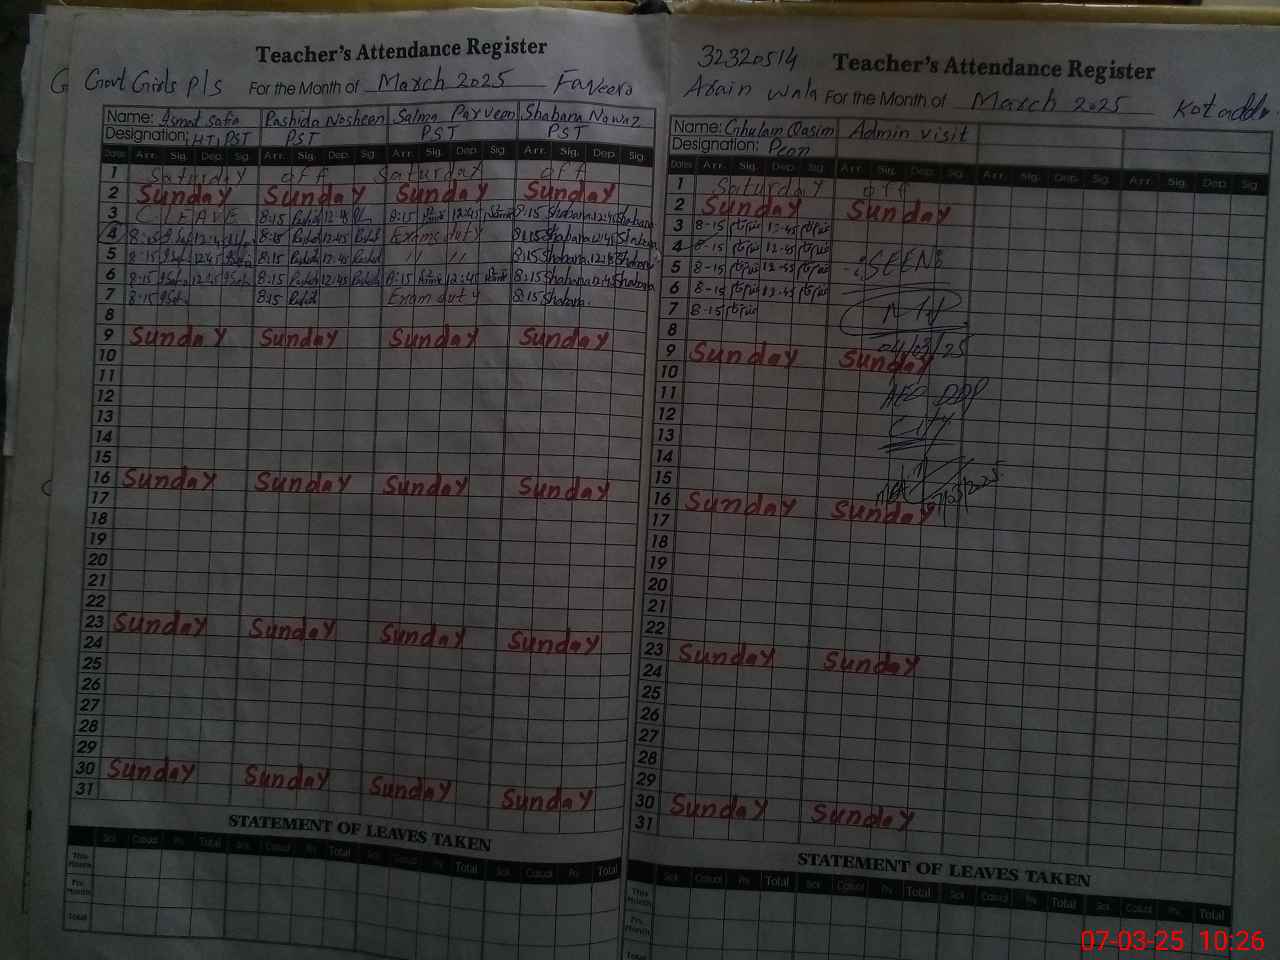 Teacher's Attendance Register
Govt Girls P/S For the Month of March 2025
Name: Asmat Safia Rashida Nosheen Salma Parveen Shabana Nawaz
Designation: HT, PST PST PST PST
Date Arr. Sig. Dep. Sig. Arr. Sig. Dep. Sig. Arr. Sig. Dep. Sig. Arr. Sig. Dep. Sig.
1 Saturday off Saturday off
2 Sunday Sunday Sunday Sunday
3 C. LEAVE 8:15 12:45 8:15 12:45 8:15 Shabana 12:45 Shabana
4 8:15 12:45 8:15 12:45 Exams duty 8:15 Shabana 12:45 Shabana
5 8-15 12:45 8:15 12:45 // // 8:15 Shabana 12:45 Shabana
6 8-15 12:45 8:15 12:45 8:15 12:45 8:15 Shabana 12:45 Shabana
7 8-15 8:15 Exam duty 8:15 Shabana
8
9 Sunday Sunday Sunday Sunday
10
11
12
13
14
15
16 Sunday Sunday Sunday Sunday
17
18
19
20
21
22
23 Sunday Sunday Sunday Sunday
24
25
26
27
28
29
30 Sunday Sunday Sunday Sunday
31
STATEMENT OF LEAVES TAKEN
Sick Casual Prv. Total Sick Casual Prv. Total Sick Casual Prv. Total Sick Casual Prv. Total
This Month
Prv. Month
Total
32320514 Teacher's Attendance Register
Arain wala For the Month of March 2025 Kot addu
Name: Ghulam Qasim Admin visit
Designation: Peon
Date Arr. Sig. Dep. Sig. Arr. Sig. Dep. Sig. Arr. Sig. Dep. Sig. Arr. Sig. Dep. Sig.
1 Saturday off
2 Sunday Sunday
3 8-15 12-45
4 8-15 12-45
5 8-15 12-45 SEEN
6 8-15 12-45
7 8-15
8 04/03/25
9 Sunday Sunday
10
11 AEO
12
13 City
14
15
16 Sunday Sunday
17
18
19
20
21
22
23 Sunday Sunday
24
25
26
27
28
29
30 Sunday Sunday
31
STATEMENT OF LEAVES TAKEN
Sick Casual Prv. Total Sick Casual Prv. Total Sick Casual Prv. Total Sick Casual Prv. Total
This Month
Prv. Month
Total
07-03-25 10:26